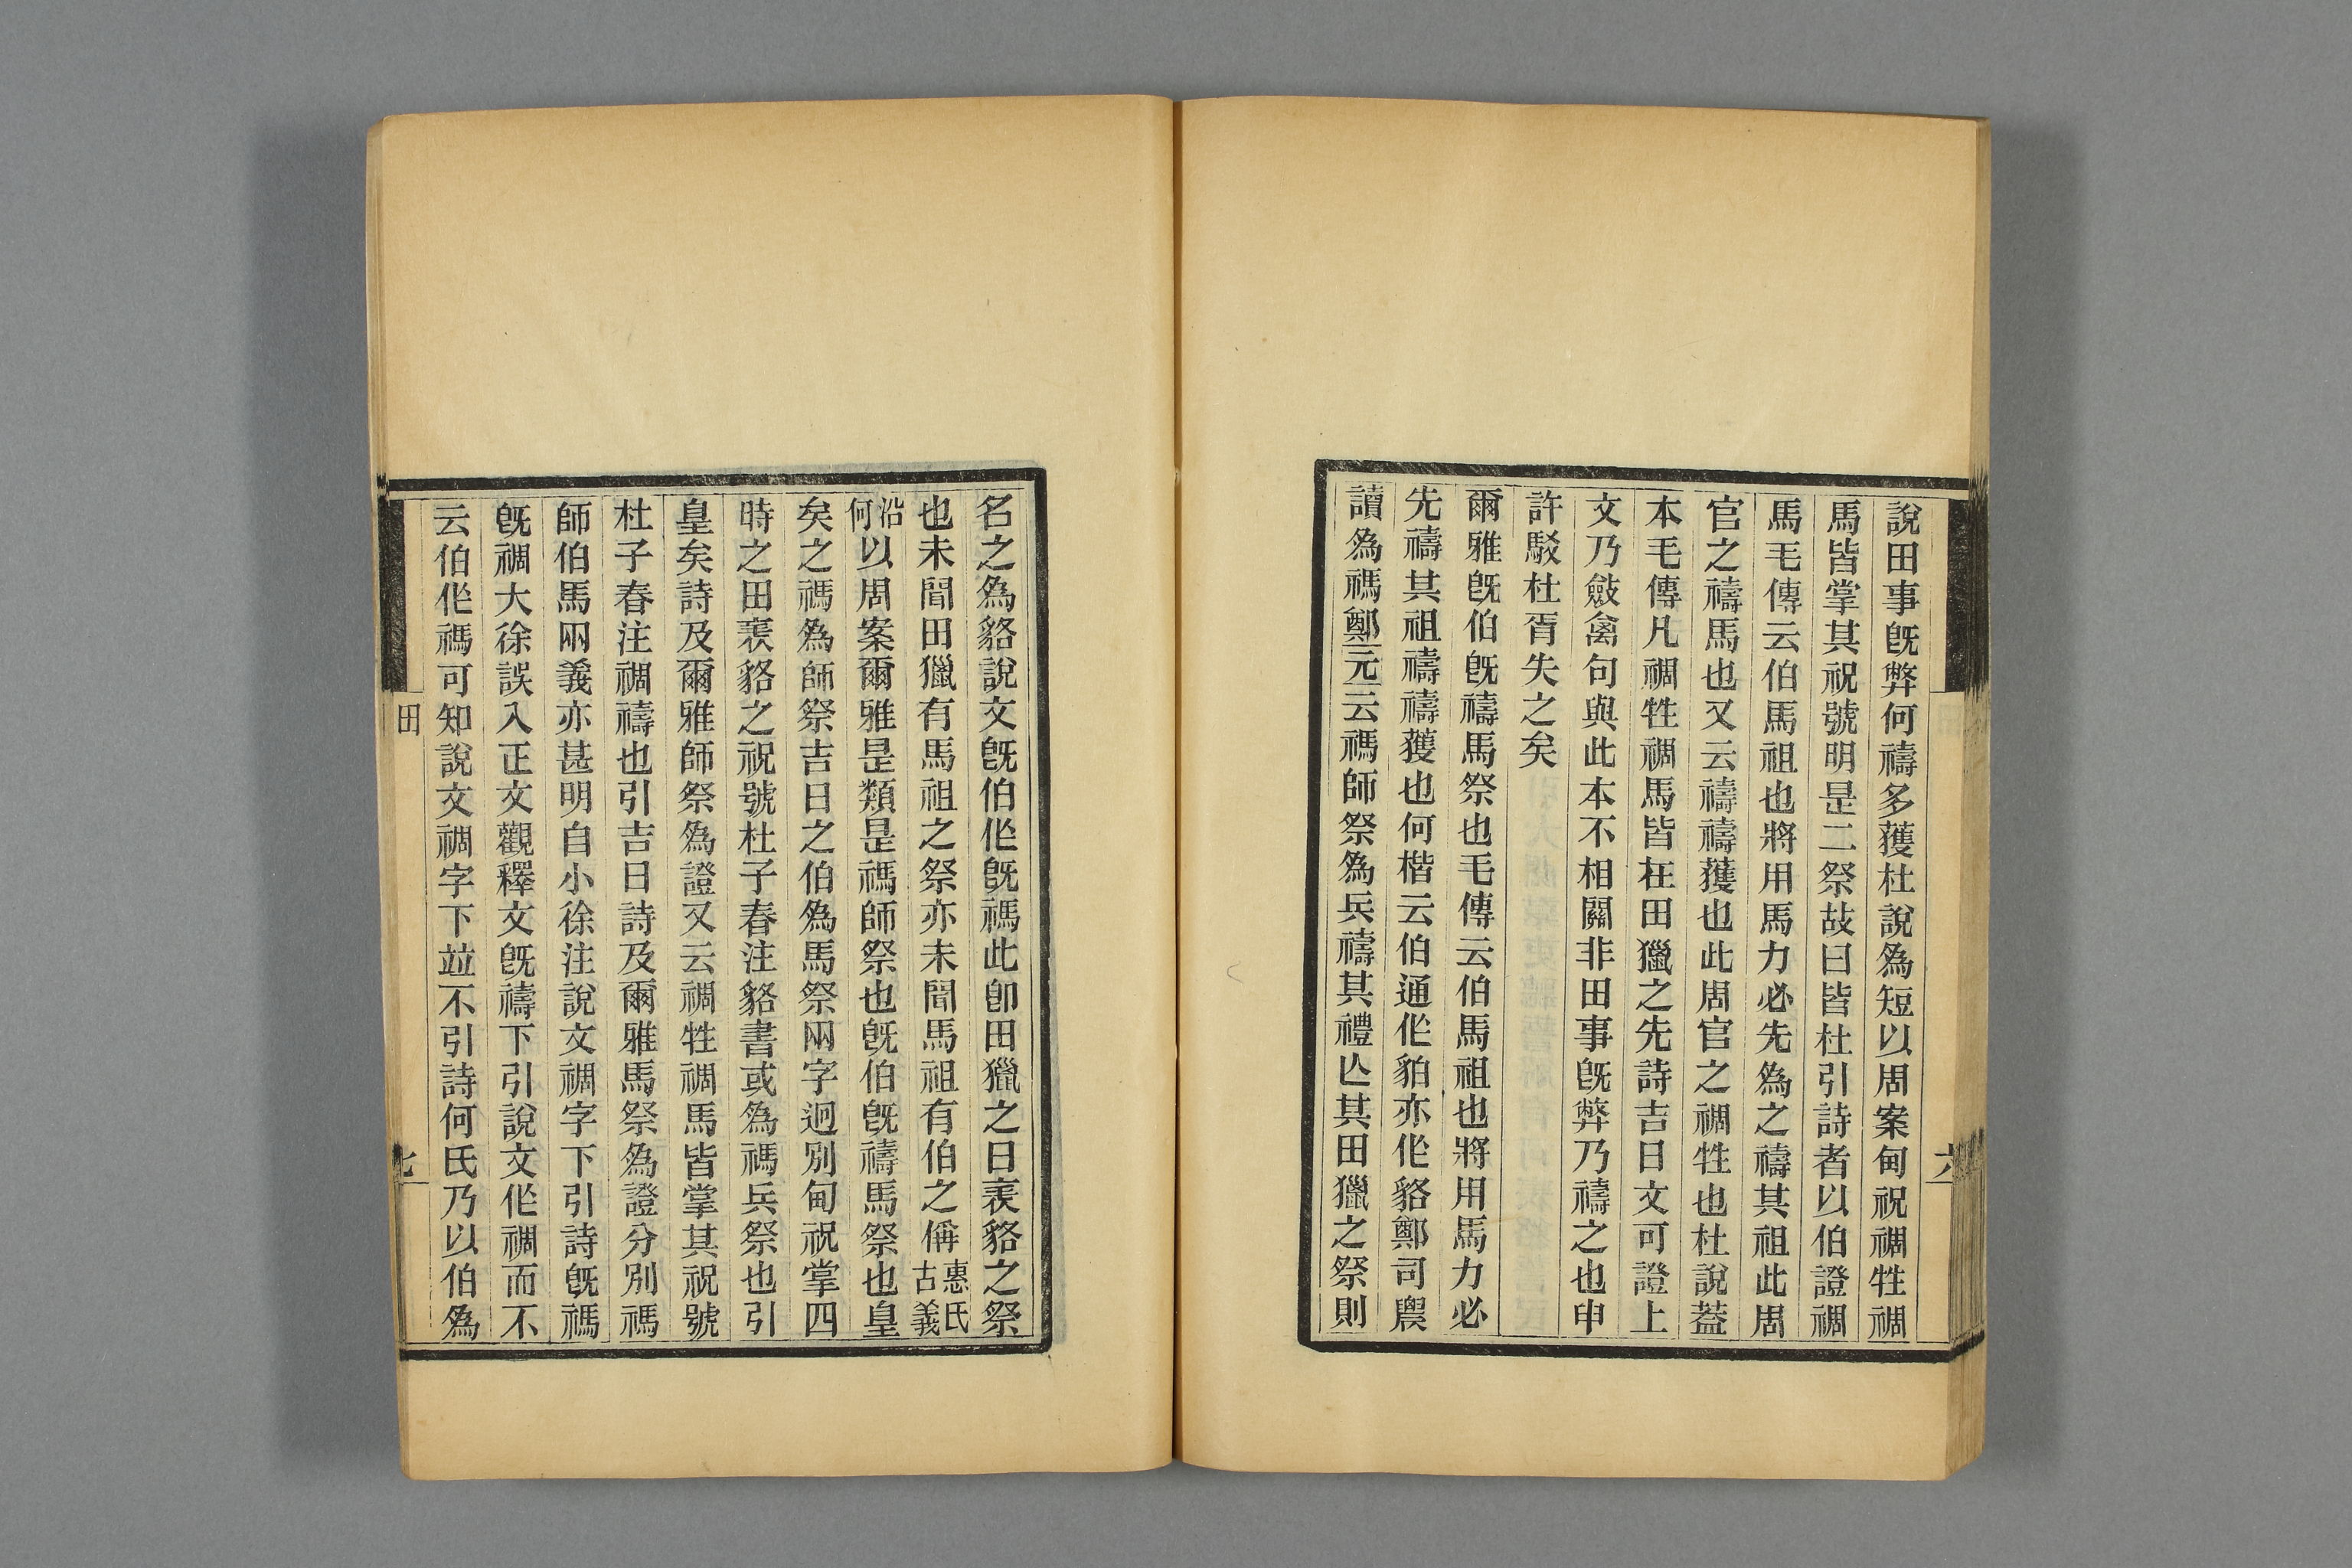 說田事旣弊何禱多獲杜說爲短以周案甸祝禂牲禂
馬皆掌其祝號明是二祭故曰皆杜引詩者以伯證禂
馬毛傳云伯馬祖也將用馬力必先爲之禱其祖此周
官之禱馬也又云禱禱獲也此周官之禂牲也杜說葢
本毛傳凡禂牲禂馬皆在田獵之先詩吉日文可證上
文乃斂禽句與此本不相關非田事旣弊乃禱之也申
許駁杜胥失之矣
爾雅旣伯旣禱馬祭也毛傳云伯馬祖也將用馬力必
先禱其祖禱禱獲也何楷云伯通作貊亦作貉鄭司農
讀爲禡鄭元云禡師祭爲兵禱其禮亾其田獵之祭則
六
名之爲貉說文旣伯作旣禡此卽田獵之日表貉之祭
也未聞田獵有馬祖之祭亦未聞馬祖有伯之偁惠氏古義
沿何以周案爾雅是類是禡師祭也旣伯旣禱馬祭也皇
矣之禡爲師祭吉日之伯爲馬祭兩字迥別甸祝掌四
時之田表貉之祝號杜子春注貉書或爲禡兵祭也引
皇矣詩及爾雅師祭爲證又云禂牲禂馬皆掌其祝號
杜子春注禂禱也引吉日詩及爾雅馬祭爲證分別禡
師伯馬兩義亦甚明自小徐注說文禂字下引詩旣禡
旣禂大徐誤入正文觀釋文旣禱下引說文作禂而不
云伯作禡可知說文禂字下竝不引詩何氏乃以伯爲
田
七